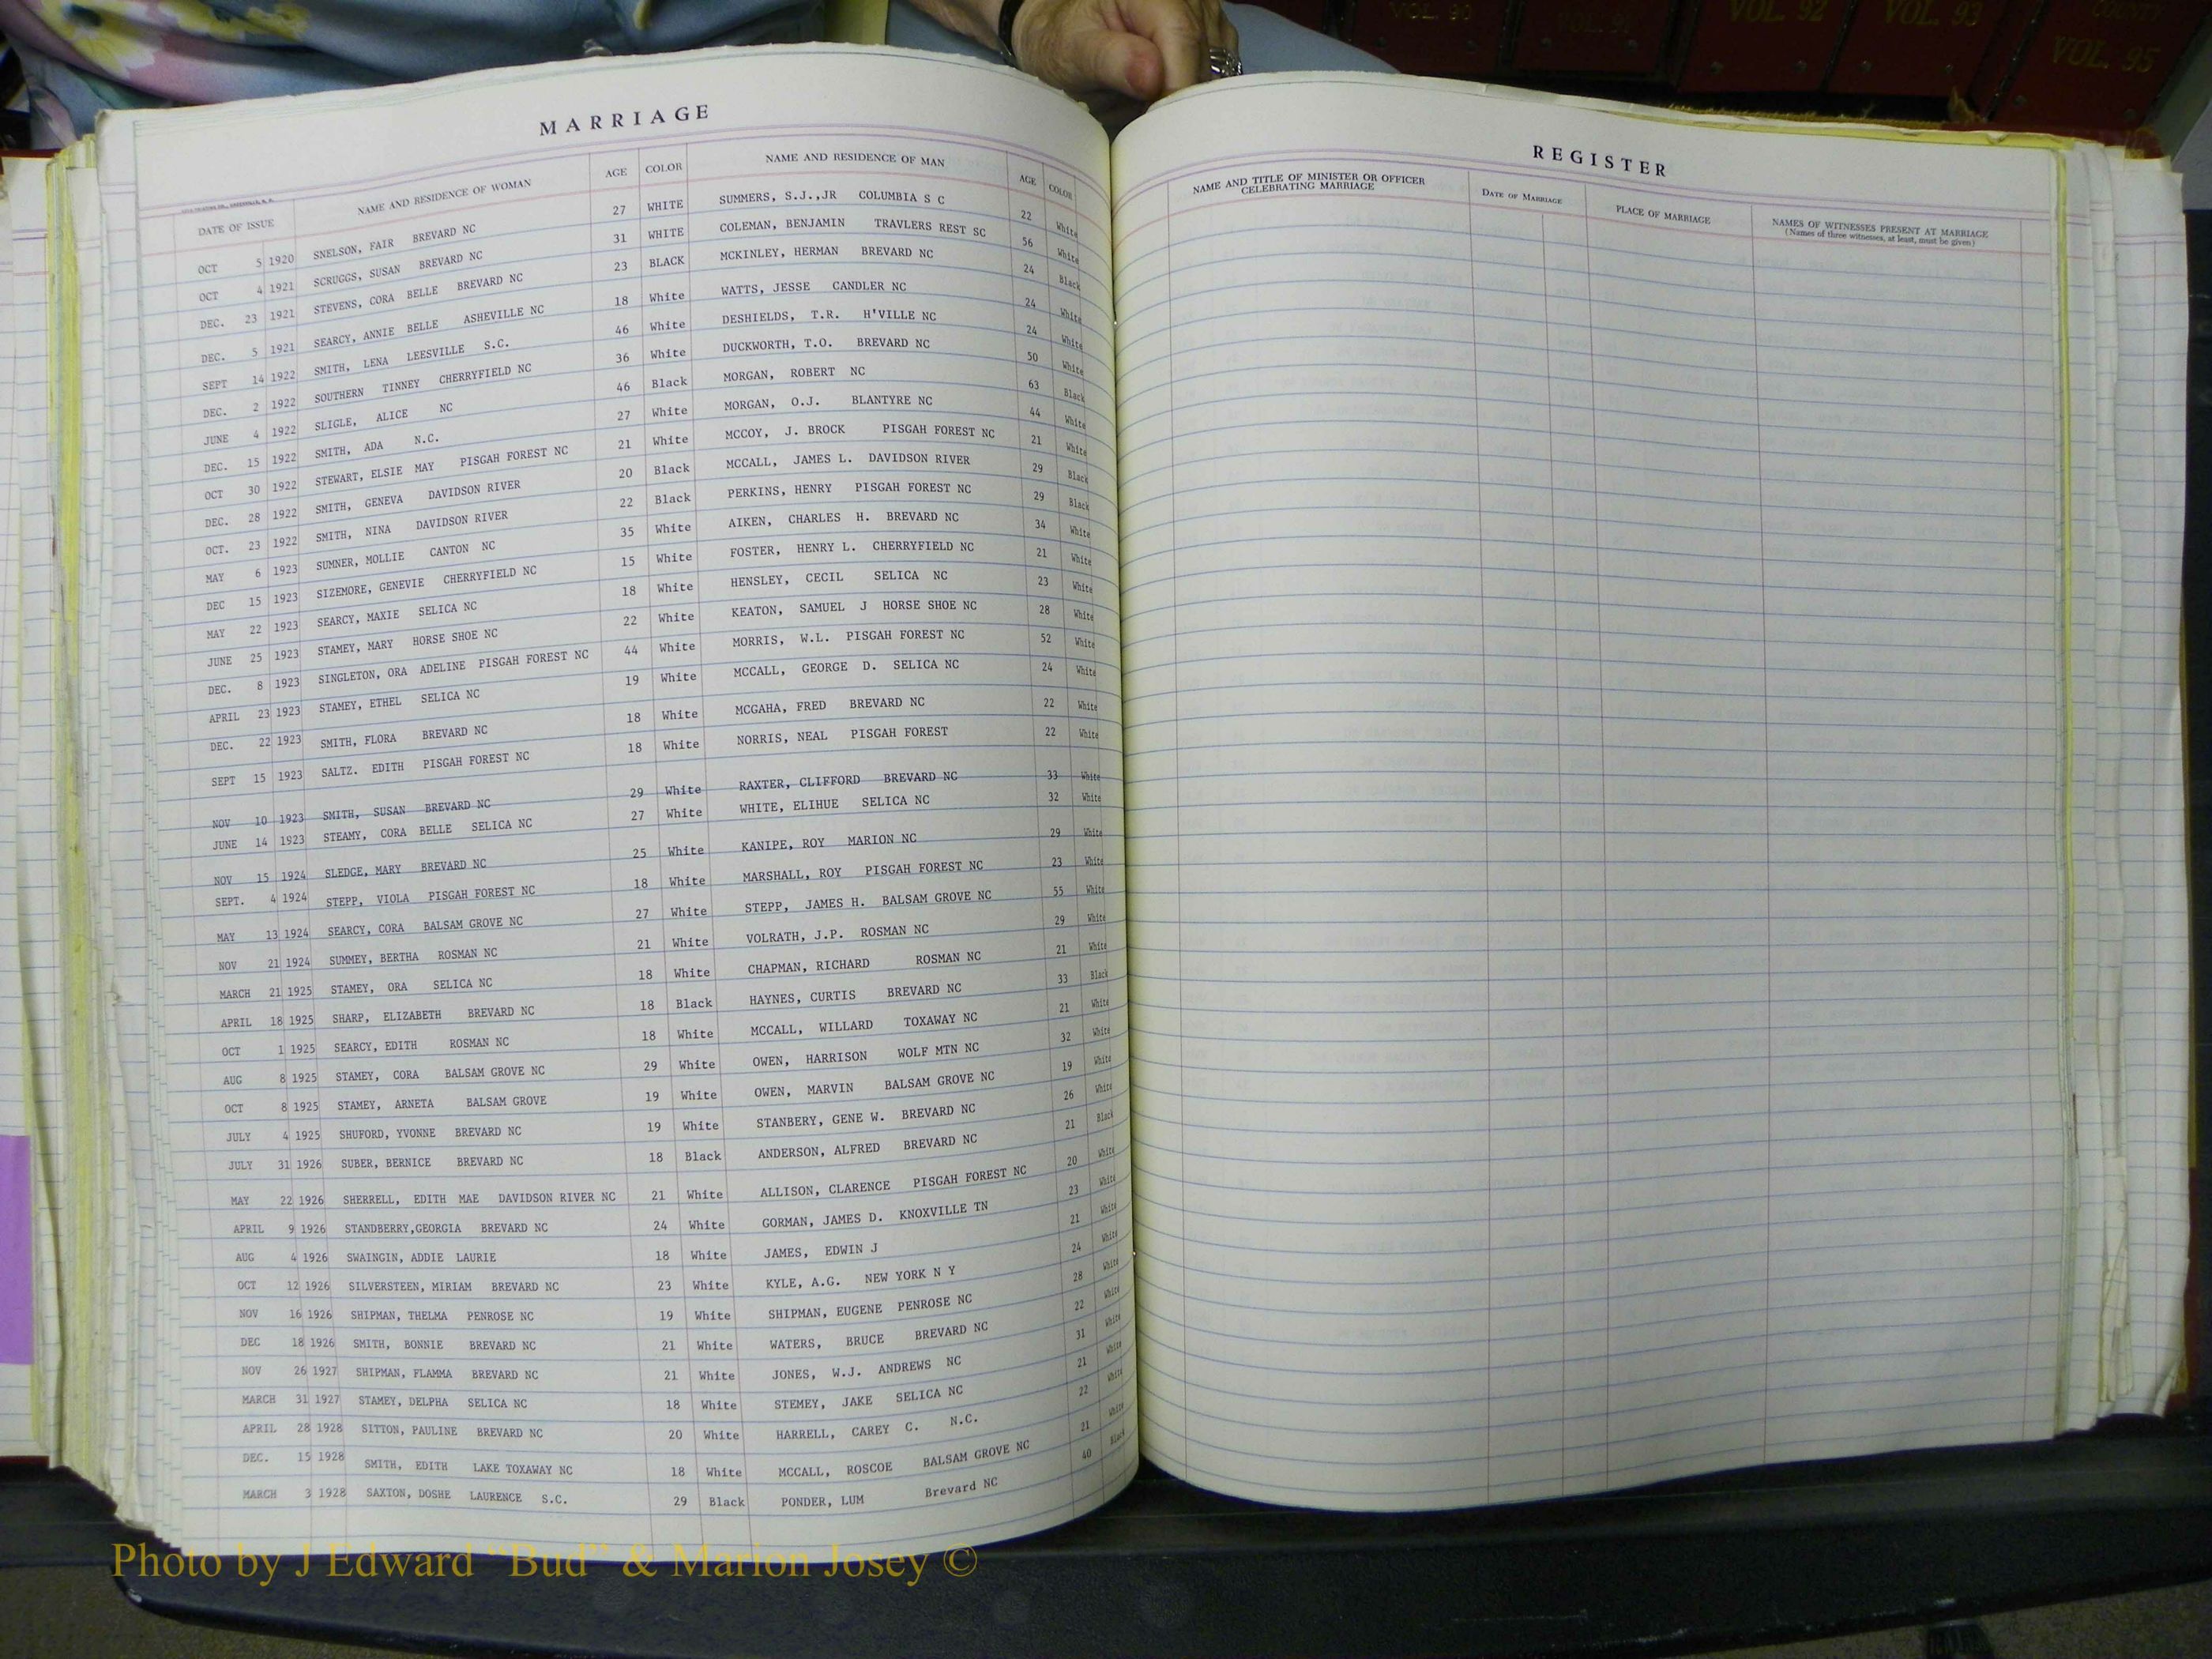 VOL. 90
VOL. 91
VOL. 92
VOL. 93
COUNTY
VOL. 95
MARRIAGE
DATE OF ISSUE NAME AND RESIDENCE OF WOMAN AGE COLOR NAME AND RESIDENCE OF MAN AGE COLOR
OCT 5 1920 SNELSON, FAIR BREVARD NC 27 WHITE SUMMERS, S.J.,JR COLUMBIA S C 22 White
OCT 4 1921 SCRUGGS, SUSAN BREVARD NC 31 WHITE COLEMAN, BENJAMIN TRAVLERS REST SC 56 White
DEC. 23 1921 STEVENS, CORA BELLE BREVARD NC 23 BLACK MCKINLEY, HERMAN BREVARD NC 24 Black
DEC. 5 1921 SEARCY, ANNIE BELLE ASHEVILLE NC 18 White WATTS, JESSE CANDLER NC 24 White
SEPT 14 1922 SMITH, LENA LEESVILLE S.C. 46 White DESHIELDS, T.R. H'VILLE NC 24 White
DEC. 2 1922 SOUTHERN TINNEY CHERRYFIELD NC 36 White DUCKWORTH, T.O. BREVARD NC 50 White
JUNE 4 1922 SLIGLE, ALICE NC 46 Black MORGAN, ROBERT NC 63 Black
DEC. 15 1922 SMITH, ADA N.C. 27 White MORGAN, O.J. BLANTYRE NC 44 White
OCT 30 1922 STEWART, ELSIE MAY PISGAH FOREST NC 21 White MCCOY, J. BROCK PISGAH FOREST NC 21 White
DEC. 28 1922 SMITH, GENEVA DAVIDSON RIVER 20 Black MCCALL, JAMES L. DAVIDSON RIVER 29 Black
OCT. 23 1922 SMITH, NINA DAVIDSON RIVER 22 Black PERKINS, HENRY PISGAH FOREST NC 29 Black
MAY 6 1923 SUMNER, MOLLIE CANTON NC 35 White AIKEN, CHARLES H. BREVARD NC 34 White
DEC 15 1923 SIZEMORE, GENEVIE CHERRYFIELD NC 15 White FOSTER, HENRY L. CHERRYFIELD NC 21 White
MAY 22 1923 SEARCY, MAXIE SELICA NC 18 White HENSLEY, CECIL SELICA NC 23 White
JUNE 25 1923 STAMEY, MARY HORSE SHOE NC 22 White KEATON, SAMUEL J HORSE SHOE NC 28 White
DEC. 8 1923 SINGLETON, ORA ADELINE PISGAH FOREST NC 44 White MORRIS, W.L. PISGAH FOREST NC 52 White
APRIL 23 1923 STAMEY, ETHEL SELICA NC 19 White MCCALL, GEORGE D. SELICA NC 24 White
DEC. 22 1923 SMITH, FLORA BREVARD NC 18 White MCGAHA, FRED BREVARD NC 22 White
SEPT 15 1923 SALTZ. EDITH PISGAH FOREST NC 18 White NORRIS, NEAL PISGAH FOREST 22 White
NOV 10 1923 SMITH, SUSAN BREVARD NC 29 White RAXTER, CLIFFORD BREVARD NC 33 White
JUNE 14 1923 STEAMY, CORA BELLE SELICA NC 27 White WHITE, ELIHUE SELICA NC 32 White
NOV 15 1924 SLEDGE, MARY BREVARD NC 25 White KANIPE, ROY MARION NC 29 White
SEPT. 4 1924 STEPP, VIOLA PISGAH FOREST NC 18 White MARSHALL, ROY PISGAH FOREST NC 23 White
MAY 13 1924 SEARCY, CORA BALSAM GROVE NC 27 White STEPP, JAMES H. BALSAM GROVE NC 55 White
NOV 21 1924 SUMMEY, BERTHA ROSMAN NC 21 White VOLRATH, J.P. ROSMAN NC 29 White
MARCH 21 1925 STAMEY, ORA SELICA NC 18 White CHAPMAN, RICHARD ROSMAN NC 21 White
APRIL 18 1925 SHARP, ELIZABETH BREVARD NC 18 Black HAYNES, CURTIS BREVARD NC 33 Black
OCT 1 1925 SEARCY, EDITH ROSMAN NC 18 White MCCALL, WILLARD TOXAWAY NC 21 White
AUG 8 1925 STAMEY, CORA BALSAM GROVE NC 29 White OWEN, HARRISON WOLF MTN NC 32 White
OCT 8 1925 STAMEY, ARNETA BALSAM GROVE 19 White OWEN, MARVIN BALSAM GROVE NC 19 White
JULY 4 1925 SHUFORD, YVONNE BREVARD NC 19 White STANBERY, GENE W. BREVARD NC 26 White
JULY 31 1926 SUBER, BERNICE BREVARD NC 18 Black ANDERSON, ALFRED BREVARD NC 21 Black
MAY 22 1926 SHERRELL, EDITH MAE DAVIDSON RIVER NC 21 White ALLISON, CLARENCE PISGAH FOREST NC 20 White
APRIL 9 1926 STANDBERRY,GEORGIA BREVARD NC 24 White GORMAN, JAMES D. KNOXVILLE TN 23 White
AUG 4 1926 SWAINGIN, ADDIE LAURIE 18 White JAMES, EDWIN J 21 White
OCT 12 1926 SILVERSTEEN, MIRIAM BREVARD NC 23 White KYLE, A.G. NEW YORK N Y 24 White
NOV 16 1926 SHIPMAN, THELMA PENROSE NC 19 White SHIPMAN, EUGENE PENROSE NC 28 White
DEC 18 1926 SMITH, BONNIE BREVARD NC 21 White WATERS, BRUCE BREVARD NC 22 White
NOV 26 1927 SHIPMAN, FLAMMA BREVARD NC 21 White JONES, W.J. ANDREWS NC 31 White
MARCH 31 1927 STAMEY, DELPHA SELICA NC 18 White STEMEY, JAKE SELICA NC 21 White
APRIL 28 1928 SITTON, PAULINE BREVARD NC 20 White HARRELL, CAREY C. N.C. 22 White
DEC. 15 1928 SMITH, EDITH LAKE TOXAWAY NC 18 White MCCALL, ROSCOE BALSAM GROVE NC 21 White
MARCH 3 1928 SAXTON, DOSHE LAURENCE S.C. 29 Black PONDER, LUM Brevard NC 40 Black
REGISTER
NAME AND TITLE OF MINISTER OR OFFICER
CELEBRATING MARRIAGE
DATE OF MARRIAGE
PLACE OF MARRIAGE
NAMES OF WITNESSES PRESENT AT MARRIAGE
(Names of three witnesses, at least, must be given)
Photo by J Edward “Bud” & Marion Josey ©